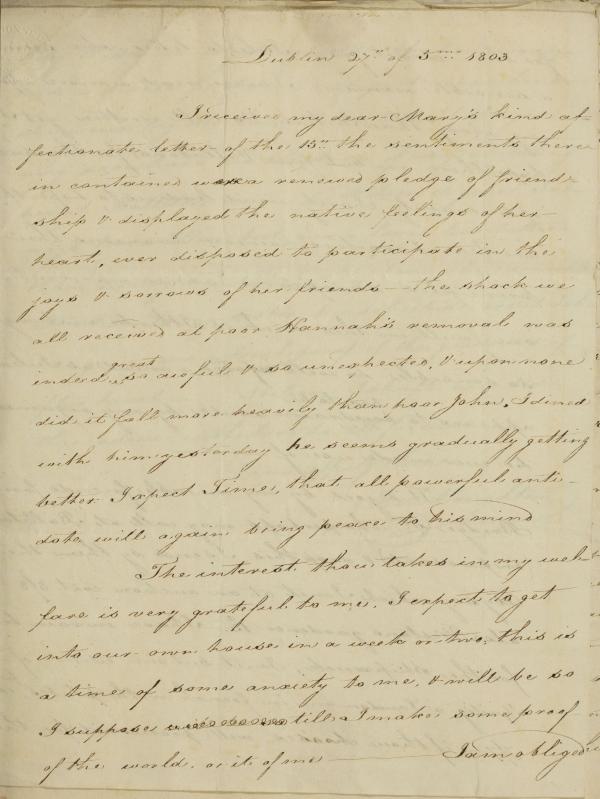 Dublin 27th of 5mo 1803
I received my dear Mary's kind af-
fectionate letter of the 15th the sentiments there
in contained were a renewed pledge of friend-
ship & displayed the native feelings of her
heart, ever disposed to participate in the
joys & sorrows of her friends — the shock we
all received at poor Hannah's removal was
indeed great so aweful & so unexpected, & upon none
did it fall more heavily than poor John, I dined
with him yesterday he seems gradually getting
better I expect Time, that all powerful anti-
dote will again bring peace to his mind
The interest thou takes in my wel-
fare is very grateful to me. I expect to get
into our own house in a week or two, this is
a time of some anxiety to me, & will be so
I suppose till I make some proof
of the world, or it of me — I am obliged